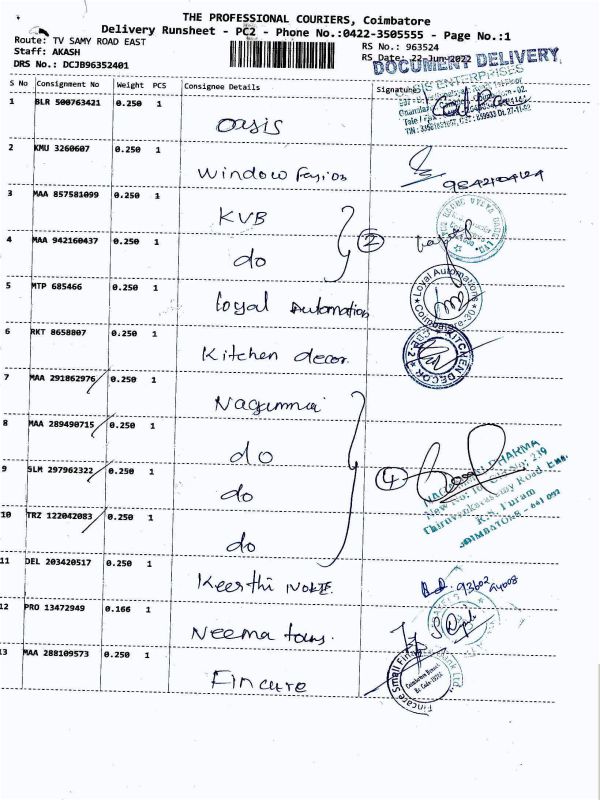 THE PROFESSIONAL COURIERS, Coimbatore
Delivery Runsheet - PC2 - Phone No.:0422-3505555 - Page No.:1
Route: TV SAMY ROAD EAST
RS No.: 963524
Staff: AKASH
RS Date: 22-Jun-2022
DRS No.: DCJB96352401
DOCUMENT DELIVERY
S No Consignment No Weight PCS Consignee Details Signature
ENTERPRISES
1 BLR 500763421 0.250 1 Oasis
2 KMU 3260607 0.250 1 Window
3 MAA 857581099 0.250 1 KVB
4 MAA 942160437 0.250 1 do 2
5 MTP 685466 0.250 1 Loyal Automation
Loyal Automations
Coimbatore
6 RKT 8658807 0.250 1 Kitchen decor.
KITCHEN DECOR
CBE-2
7 MAA 291862976 0.250 1 Nagammai
8 MAA 289490715 0.250 1 do
9 SLM 297962322 0.250 1 do 4
PHARMA
New No: 10, Old No: 219
Road
R.S. Puram
COIMBATORE - 641 002
10 TRZ 122042083 0.250 1 do
11 DEL 203420517 0.250 1 Keerthi
12 PRO 13472949 0.166 1 Neema tours.
13 MAA 288109573 0.250 1 Fincare
Fincare Small Finance Bank Ltd.
Coimbatore Branch